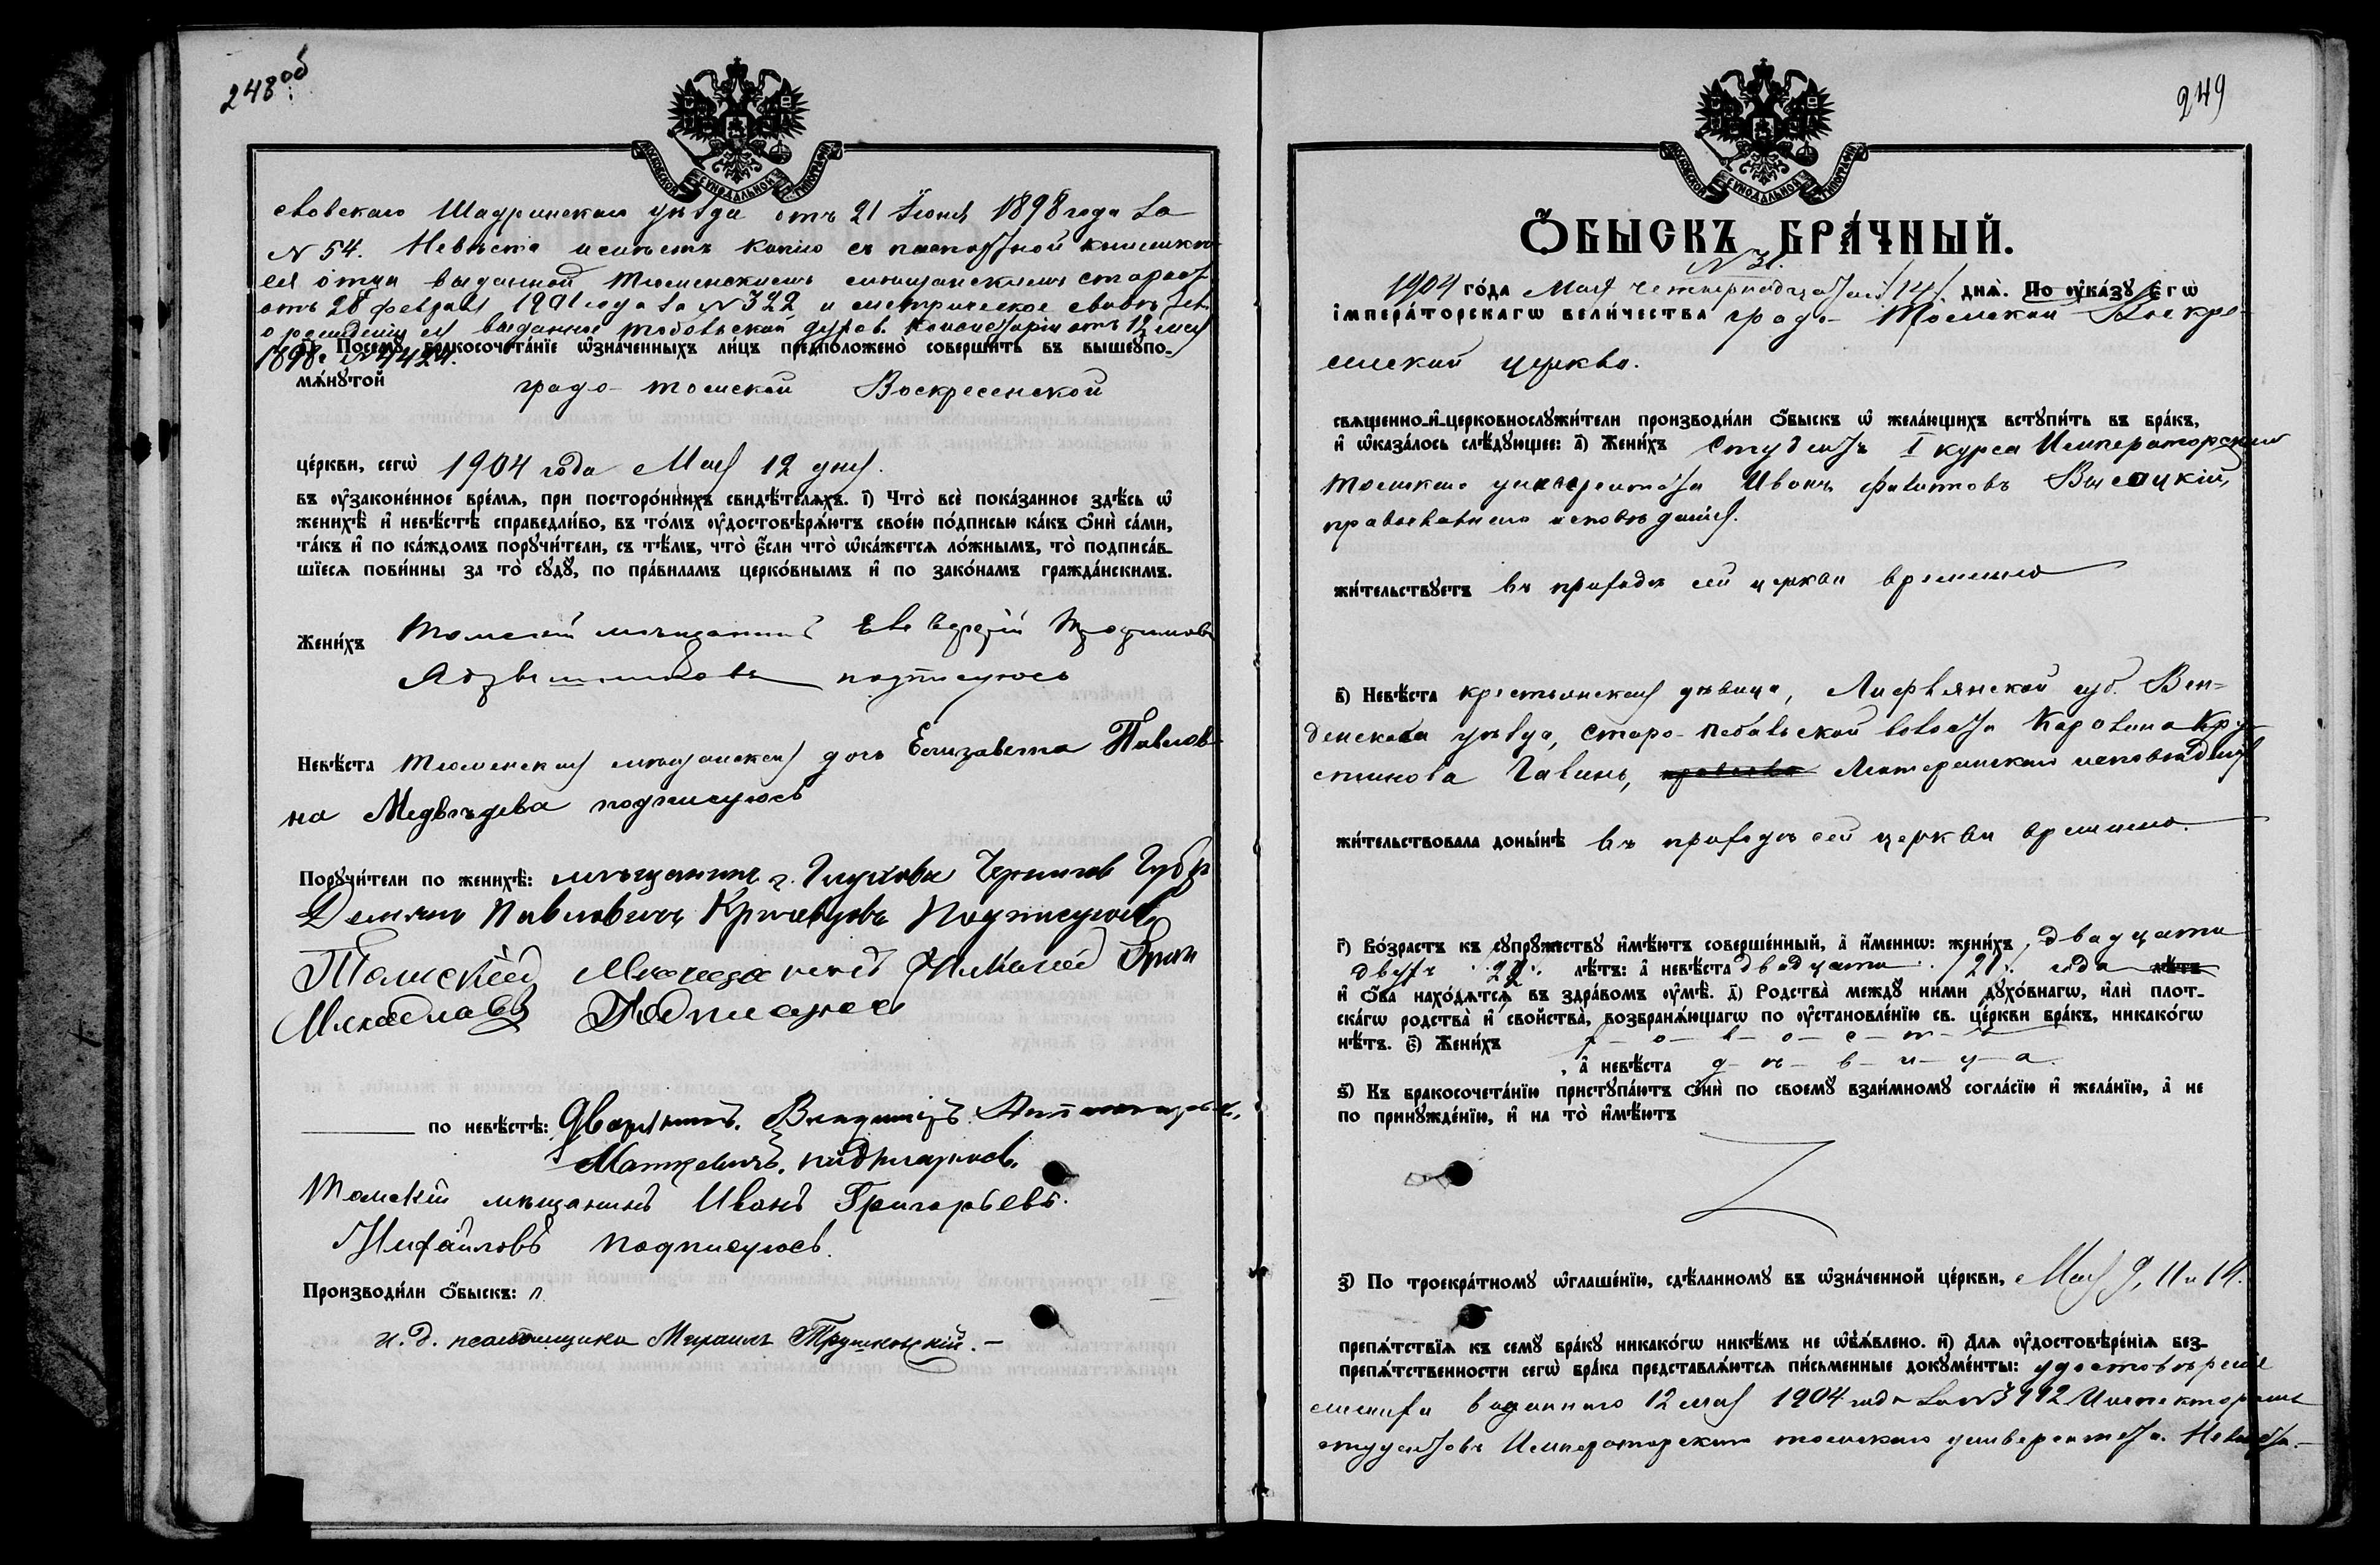 248об
МОСКОВСКОЙ СѴНОДАЛЬНОЙ ТИПОГРАФІИ
Шадринскаго уѣзда отъ 21 Іюня 1898 года за
N 54. Невѣста копію съ паспортной книжки
ея отца выданной Тюменскимъ мѣщанскимъ
отъ 28 февраля 1901 года за N 322 и метрическое
о рожденіи ея выданное Тобольской духов. Консисторіи отъ 12 мая
1898 г. N 7424.
ѳ҃) Посемꙋ̀ бракосочета́нїе ѡ҆зна́ченныхъ ли́цъ предположено̀ соверши́ть въ вышеꙋпо-
мѧ́нꙋтой градо-Томской Воскресенской
це́ркви, сегѡ̀ 1904 года Мая 12 дня.
въ ᲂу҆законе́нное вре́мѧ, при посторо́ннихъ свидѣ́телѧхъ. і҃) Что̀ всѐ пока́занное здѣ́сь ѡ҆
женихѣ̀ и҆ невѣ́стѣ справедли́во, въ то́мъ ᲂу҆достовѣрѧ́ютъ свое́ю по́дписью ка́къ ѻ҆нѝ са́ми,
та́къ и҆ по ка́ждомъ порꙋчи́тели, съ тѣ́мъ, что̀ є҆́сли что̀ ѡ҆ка́жетсѧ ло́жнымъ, то̀ подписа́в-
шїесѧ пови́нны за то̀ сꙋдꙋ̀, по пра́виламъ церко́внымъ и҆ по зако́намъ гражда́нскимъ.
Жени́хъ Томскій мѣщанинъ
подписуюсь
Невѣ́ста Тюменская мѣщанская дочь Елизавета Павлов-
на Медвѣдева подписуюсь
Порꙋчи́тели по женихѣ̀: мѣщанинъ г. Глухова Чернигов Губер
Демянъ Павловичъ Кричевцовъ Подписуюсь
Томскій Мѣщанинъ Николай
Подписуюсь
по невѣ́стѣ: Дворянинъ. Владиміръ
Маткевичъ. подписуюсь.
Томскій мѣщанинъ Иванъ Григорьевъ.
Михайловъ подписуюсь.
Производи́ли ѻ҆́быскъ: п
И. д. псаломщика Михаилъ Трушковскій. —
249
МОСКОВСКОЙ СѴНОДАЛЬНОЙ ТИПОГРАФІИ
Ѻ҆́БЫСКЪ БРА́ЧНЫЙ.
N 31.
1904 го́да Мая четырнадцатаго /14/. днѧ̀. По ᲂу҆ка́зꙋ Є҆гѡ̀
І҆мпера́торскагѡ Вели́чества градо-Томской Воскре-
сенской церкви.
свѧщенно-и҆-церковнослꙋжи́тели производи́ли ѻ҆́быскъ ѡ҆ жела́ющихъ встꙋпи́ть въ бра́къ,
и҆ ѡ҆каза́лось слѣ́дꙋющее: а҃) Жени́хъ Студентъ I курса Императорскаго
Томскаго университета Иванъ Филиповъ Высоцкій,
православнаго исповѣданія.
жи́тельствꙋетъ въ приходѣ сей церкви временно
в҃) Невѣ́ста крестьянская дѣвица, Лифлянской губ. Вен-
денскаго уѣзда, Старо-Пебальской волости Каролина Кру-
стинова Галинь, Лютеранскаго исповѣданія
жи́тельствовала доны́нѣ въ приходѣ сей церкви временно.
г҃) Во́зрастъ къ сꙋпрꙋ́жествꙋ и҆мѣ́ютъ соверше́нный, а҆ и҆́меннѡ: жени́хъ двадцати
двухъ 22 лѣ́тъ: а҆ невѣ́ста двадцати /21/. года лѣ́тъ
и҆ ѻ҆́ба нахо́дѧтсѧ въ здра́вомъ ᲂу҆мѣ̀. д҃) Родства̀ междꙋ̀ ни́ми дꙋхо́внагѡ, и҆лѝ плот-
ска́гѡ родства̀ и҆ сво́йства̀, возбранѧ́ющагѡ по ᲂу҆становле́нїю св. це́ркви бра́къ, никако́гѡ
нѣ́тъ. є҃) Жени́хъ х-о-л-о-с-т-ъ
, а҆ невѣ́ста д-ѣ-в-и-ц-а.
ѕ҃) Къ бракосочета́нїю пристꙋпа́ютъ ѻ҆нѝ по своемꙋ̀ взаи́мномꙋ согла́сїю и҆ жела́нїю, а҆ не
по принꙋжде́нїю, и҆ на то̀ и҆мѣ́ютъ
з҃) По троекра́тномꙋ ѡ҆глаше́нїю, сдѣ́ланномꙋ въ ѡ҆зна́ченной це́ркви, Мая 9, 11 и 14.
препѧ́тствїѧ къ семꙋ̀ бра́кꙋ никако́гѡ никѣ́мъ не ѡ҆б̾ѧ́влено. и҃) Длѧ ᲂу҆достовѣре́нїѧ без-
препѧ́тственности сегѡ̀ бра́ка представлѧ́ютсѧ пи́сьменные докꙋме́нты: удостовѣреніе
жениха выданнаго 12 мая 1904 года за N 3992 Инспекторомъ
студентовъ Императорскаго Томскаго университета. Невѣста. —